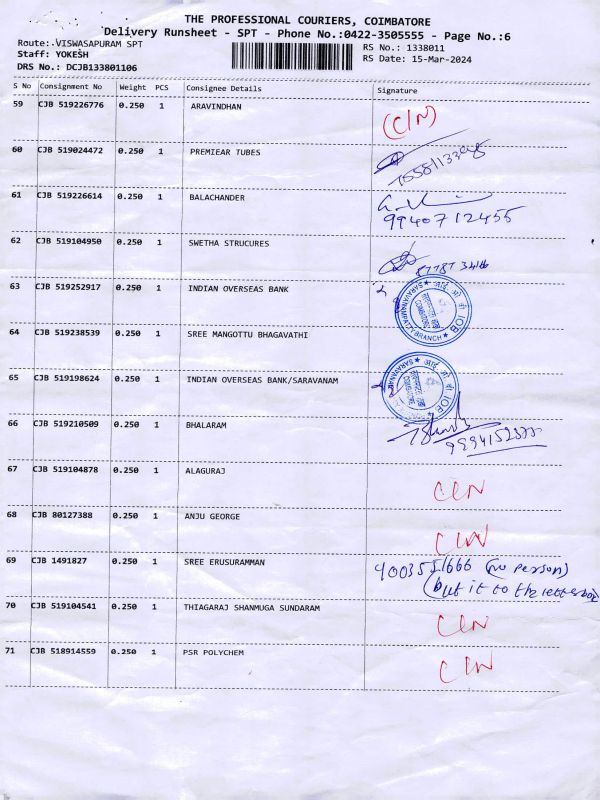 THE PROFESSIONAL COURIERS, COIMBATORE
Delivery Runsheet - SPT - Phone No.:0422-3505555 - Page No.:6
Route: VISWASAPURAM SPT
Staff: YOKESH
DRS No.: DCJB133801106
RS No.: 1338011
RS Date: 15-Mar-2024
S No Consignment No Weight PCS Consignee Details Signature
59 CJB 519226776 0.250 1 ARAVINDHAN (CIN)
60 CJB 519024472 0.250 1 PREMIEAR TUBES
61 CJB 519226614 0.250 1 BALACHANDER
9940712455
62 CJB 519104950 0.250 1 SWETHA STRUCURES
63 CJB 519252917 0.250 1 INDIAN OVERSEAS BANK
SARAVANAMPATTY BRANCH IOB
64 CJB 519238539 0.250 1 SREE MANGOTTU BHAGAVATHI
65 CJB 519198624 0.250 1 INDIAN OVERSEAS BANK/SARAVANAM
IOB
66 CJB 519210509 0.250 1 BHALARAM
67 CJB 519104878 0.250 1 ALAGURAJ
CIN
68 CJB 80127388 0.250 1 ANJU GEORGE
CIN
69 CJB 1491827 0.250 1 SREE ERUSURAMMAN (no person)
(but it to the letter box
70 CJB 519104541 0.250 1 THIAGARAJ SHANMUGA SUNDARAM
CIN
71 CJB 518914559 0.250 1 PSR POLYCHEM
CIN